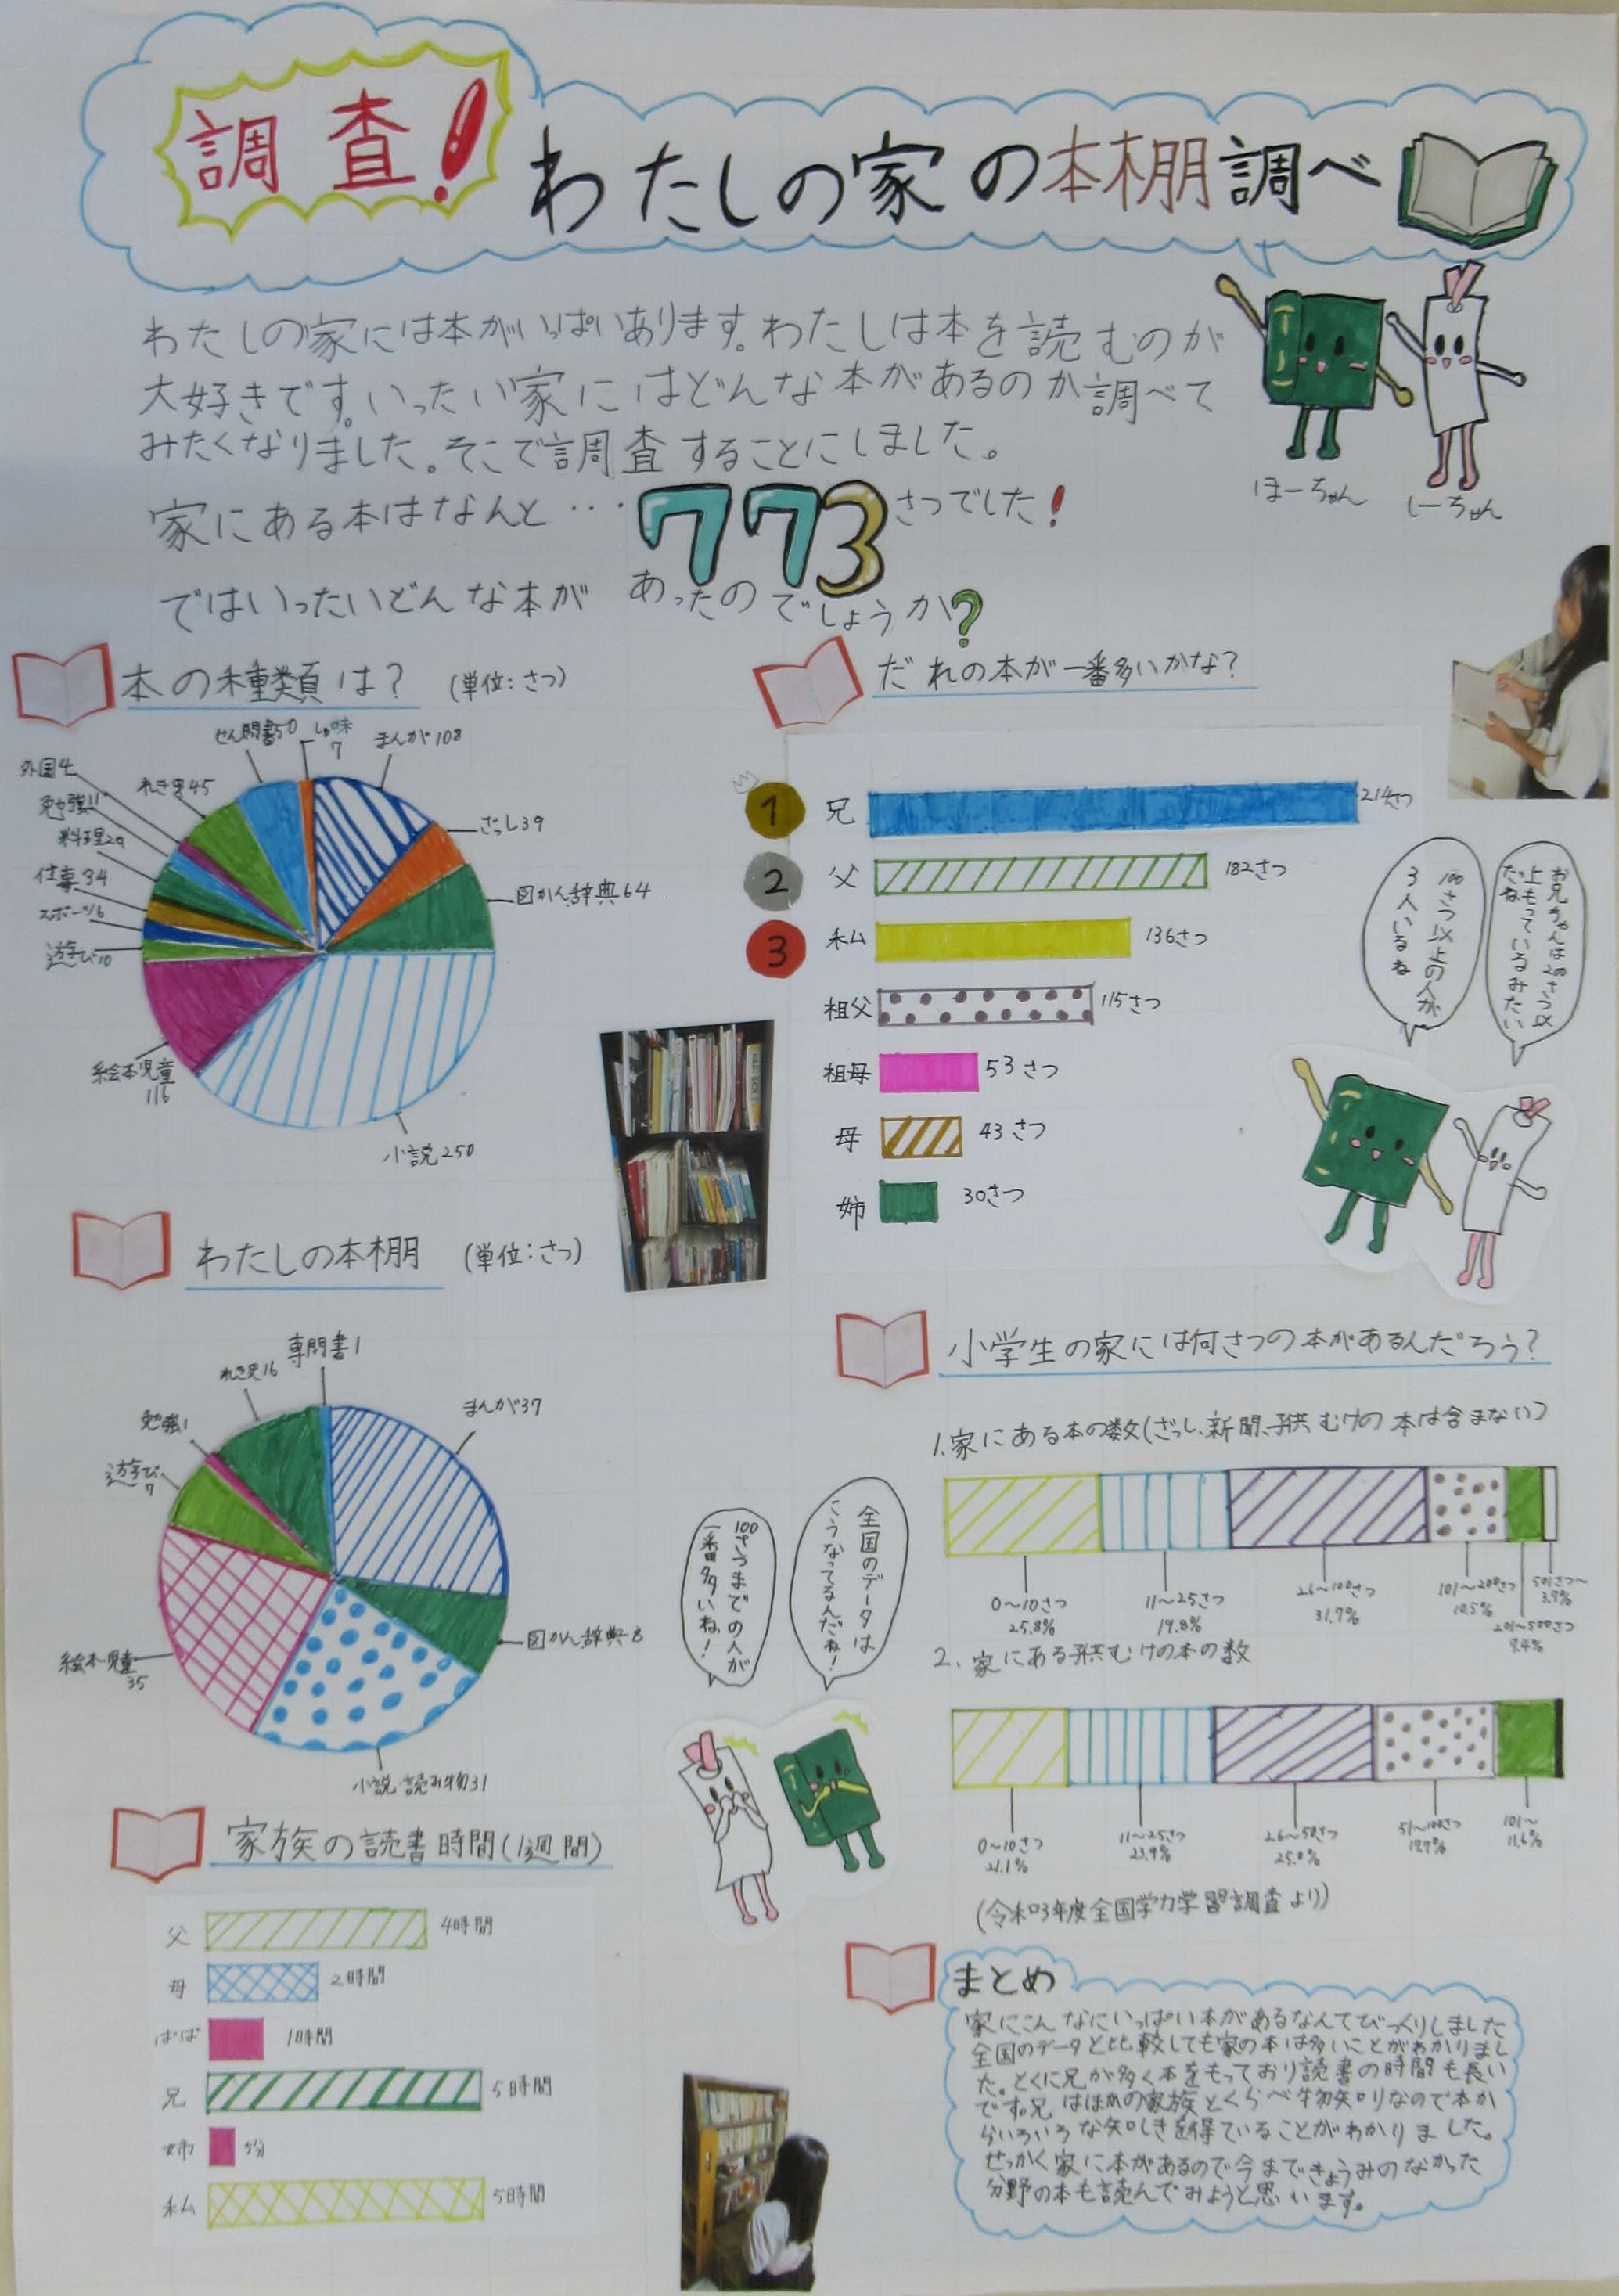 調査!
わたしの家の本棚調べ
わたしの家には本がいっぱいあります。わたしは本を読むのが
大好きです。いったい家にはどんな本があるのか調べて
みたくなりました。そこで調査することにしました。
家にある本はなんと…773さつでした!
ではいったいどんな本があったのでしょうか?
ほーちゃん
しーちゃん
本の種類は? (単位:さつ)
せん門書50
しゅ味
7
まんが108
ざっし39
図かん辞典64
小説250
絵本児童
116
遊び10
スポーツ6
仕事34
料理29
勉強11
外国4
れき史45
だれの本が一番多いかな?
1 兄 214さつ
2 父 182さつ
3 私 136さつ
祖父 115さつ
祖母 53さつ
母 43さつ
姉 30さつ
お兄ちゃんは200さつ以
上もっているみたい
だね
100さつ以上の人が
3人いるね
わたしの本棚 (単位:さつ)
専門書1
まんが37
図かん辞典8
小説・読み物31
絵本・児童
35
遊び
7
勉強1
れき史16
小学生の家には何さつの本があるんだろう?
1.家にある本の数(ざっし、新聞、子供むけの本は含まない)
0〜10さつ
25.8%
11〜25さつ
19.8%
26〜100さつ
31.7%
101〜200さつ
10.5%
201〜500さつ
501さつ〜
3.9%
2、家にある子供むけの本の数
0〜10さつ
21.1%
11〜25さつ
23.9%
26〜50さつ
25.0%
51〜100さつ
101〜
11.6%
(令和3年度全国学力学習調査より)
全国のデータは
こうなってるんだね!
100さつまでの人が
一番多いね!
家族の読書時間(1週間)
父 4時間
母 2時間
ばば 1時間
兄 5時間
姉 5分
私 5時間
まとめ
家にこんなにいっぱい本があるなんてびっくりしました
全国のデータと比較しても家の本は多いことがわかりまし
た。とくに兄が多く本をもっており読書の時間も長い
です。兄はほかの家族とくらべ物知りなので本か
らいろいろな知しきを得ていることがわかりました。
せっかく家に本があるので今まできょうみのなかった
分野の本も読んでみようと思います。